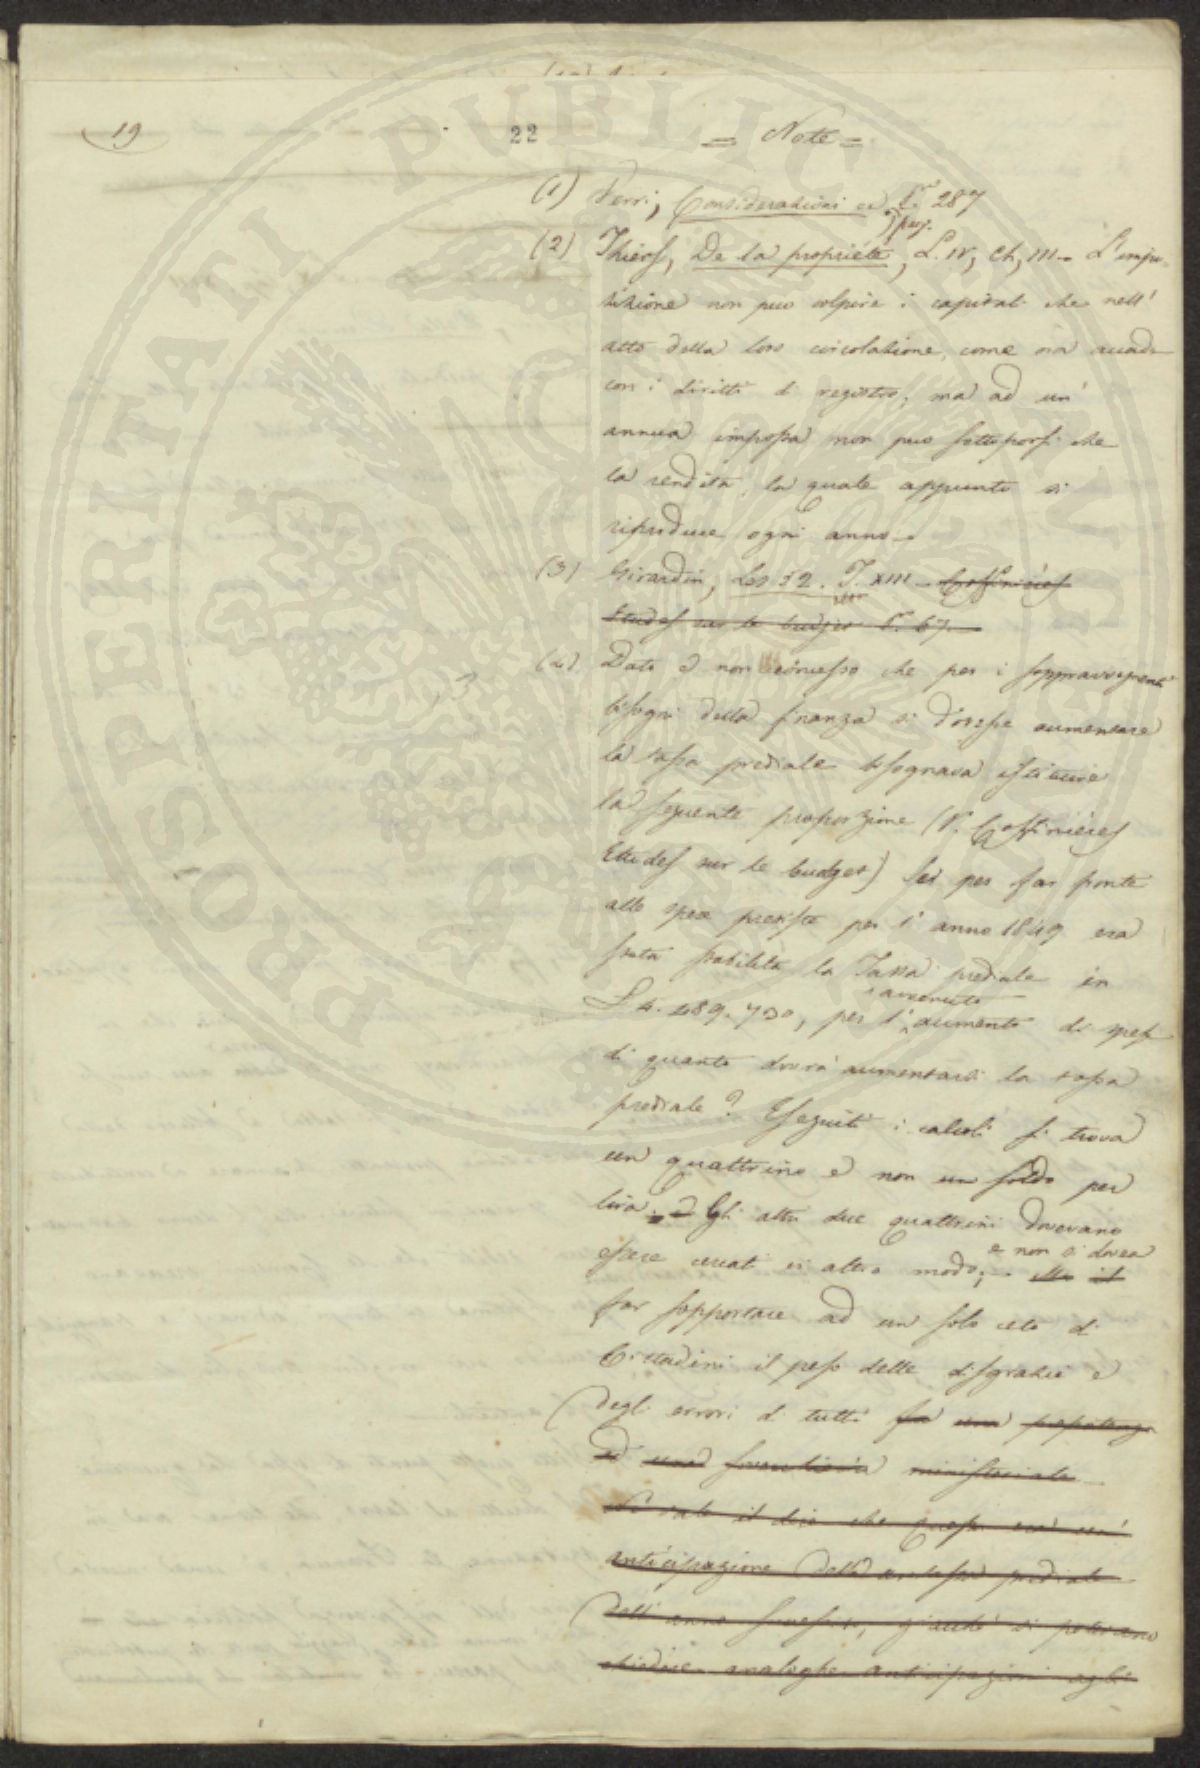 19
22
= Note =
(1) Verri, Considerazioni ec. f. 287
e seg.
(2) Thiers, De la propriété, L. IV, Ch, III - L'impo-
sizione non può colpire i capitali che nell'
atto della loro circolazione, come ora accade
con i diritti di registro; ma ad un'
annua imposta non può sottoporsi che
la rendita, la quale appunto si
riproduce ogni anno -
(3) Girardin, Les 52. T. XIII - Coffinières
Etudes sur le budget P. 67 -
(4) Dato e non concesso che per i sopravvegnenti
bisogni della finanza si dovesse aumentare
la tassa prediale bisognava istituire
la seguente proporzione (V. Coffinières
Etudes sur le budget) Se per far fronte
alle spese previste per l'anno 1849 era
stata stabilita la Tassa prediale in
£ 4. 489. 730, per l' avvenuto aumento di spese
di quanto dovrà aumentarsi la tassa
prediale? Eseguiti i calcoli si trova
un quattrino e non un soldo per
lira. e Gli altri due quattrini dovevano
essere cercati in altro modo; e non si dovea
ma il
far sopportare ad un solo ceto di
Cittadini il peso delle disgrazie e
degli errori di tutti fu una prepotenza
ed una ministeriale
Nè vale il dire che quasi era un'
anticipazione della tassa prediale
dell'anno successivo, giacchè si potevano
chiedere analoghe anticipazioni agli